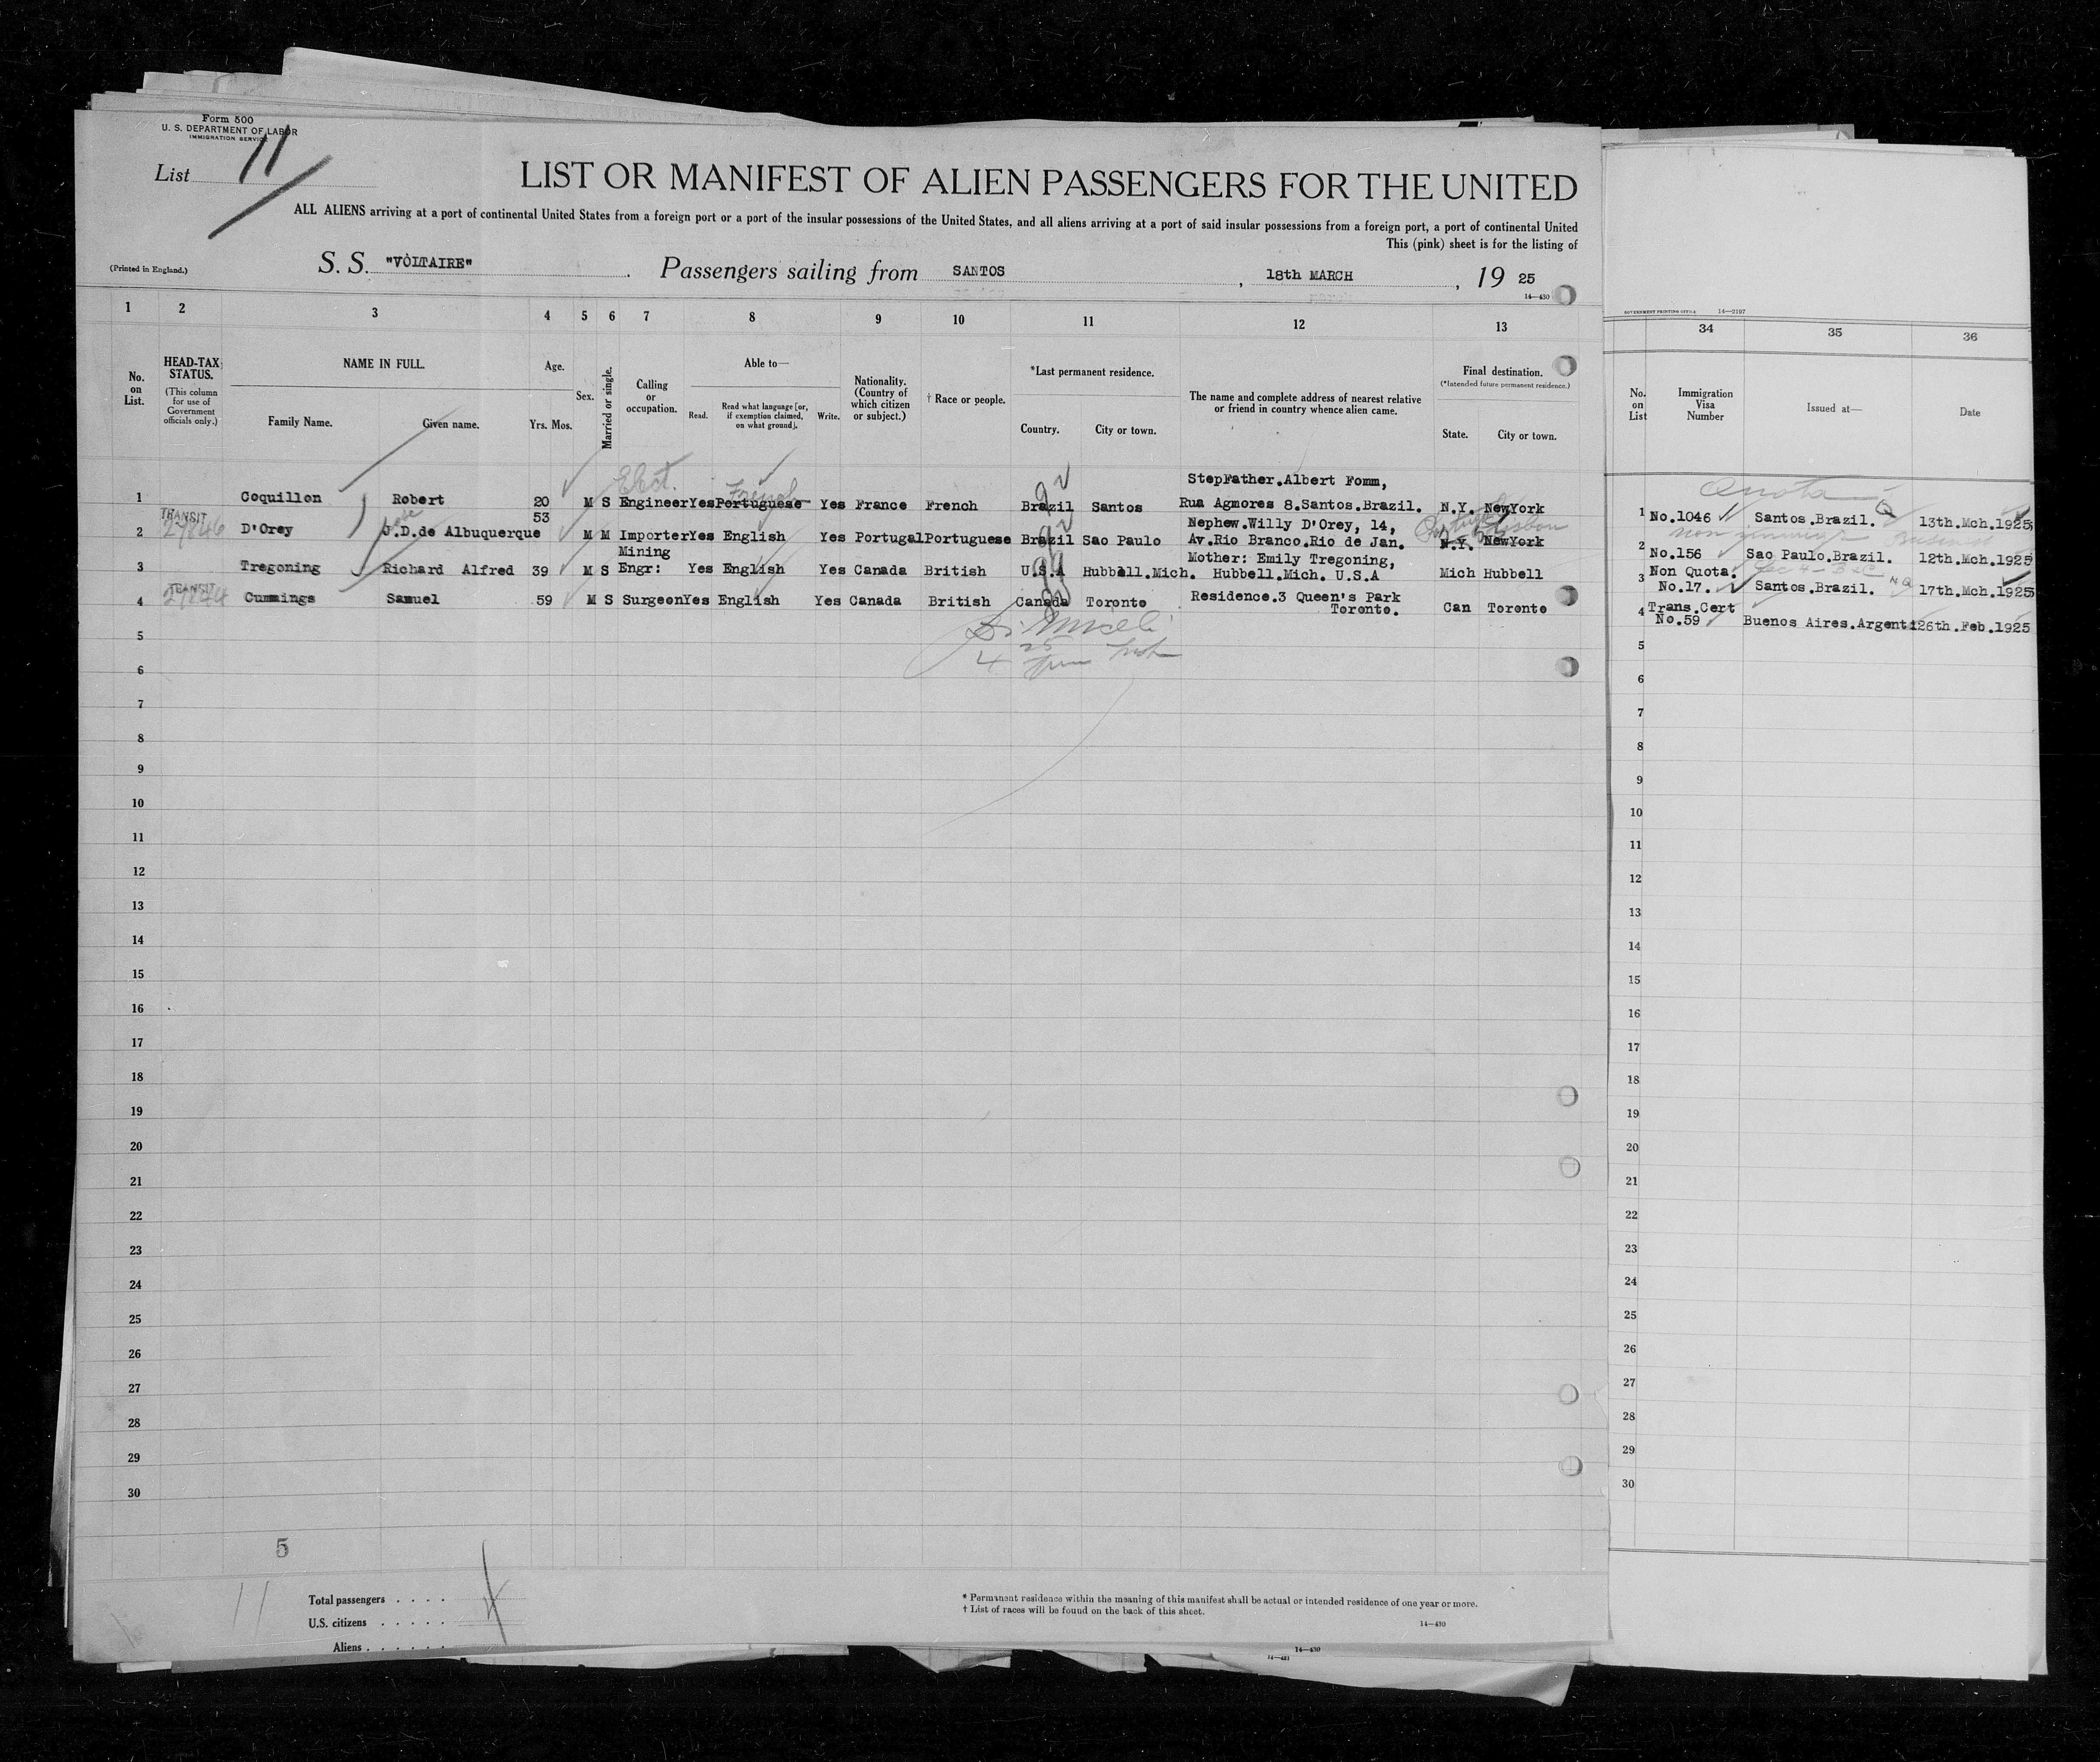 Form 500
U. S. DEPARTMENT OF LABOR
IMMIGRATION SERVICE
List 11
LIST OR MANIFEST OF ALIEN PASSENGERS FOR THE UNITED
ALL ALIENS arriving at a port of continental United States from a foreign port or a port of the insular possessions of the United States, and all aliens arriving at a port of said insular possessions from a foreign port, a port of continental United
This (pink) sheet is for the listing of
(Printed in England.)
S. S. "VOLTAIRE" . Passengers sailing from SANTOS , 18th MARCH , 19 25
14—430
1 2 3 4 5 6 7 8 9 10 11 12 13
No. on List.
HEAD-TAX STATUS.
(This column for use of Government officials only.)
NAME IN FULL.
Family Name. Given name.
Age.
Yrs. Mos.
Sex.
Married or single.
Calling or occupation.
Able to—
Read. Read what language [or, if exemption claimed, on what ground]. Write.
Nationality. (Country of which citizen or subject.)
† Race or people.
*Last permanent residence.
Country. City or town.
The name and complete address of nearest relative or friend in country whence alien came.
Final destination.
(*Intended future permanent residence.)
State. City or town.
GOVERNMENT PRINTING OFFICE 14—2197
34 35 36
No. on List
Immigration Visa Number
Issued at—
Date
Elect.
French
StepFather.Albert Fomm,
1 Coquillon Robert 20 M S Engineer Yes Portuguese Yes France French Brazil Santos Rua Agmores 8.Santos.Brazil. N.Y. NewYork
TRANSIT
53
Nephew.Willy D'Orey, 14,
Lisbon
2 D'Orey J.D.de Albuquerque M M Importer Yes English Yes Portugal Portuguese Brazil Sao Paulo Av.Rio Branco.Rio de Jan. N.Y. NewYork
Mining
Mother: Emily Tregoning,
3 Tregoning Richard Alfred 39 M S Engr: Yes English Yes Canada British U.S.A Hubbell.Mich. Hubbell.Mich. U.S.A Mich Hubbell
TRANSIT
4 Cummings Samuel 59 M S Surgeon Yes English Yes Canada British Canada Toronto Residence.3 Queen's Park Toronto. Can Toronto
Quota
1 No.1046 Santos.Brazil. Q 13th.Mch.1925
2 No.156 Sao Paulo.Brazil. 12th.Mch.1925
3 Non Quota. No.17. Santos.Brazil. NQ 17th.Mch.1925
4 Trans.Cert No.59 Buenos Aires.Argenti 26th.Feb.1925
5 5
6 6
7 7
8 8
9 9
10 10
11 11
12 12
13 13
14 14
15 15
16 16
17 17
18 18
19 19
20 20
21 21
22 22
23 23
24 24
25 25
26 26
27 27
28 28
29 29
30 30
5
11
Total passengers . . . .
U.S. citizens . . . . .
Aliens . . . . . .
* Permanent residence within the meaning of this manifest shall be actual or intended residence of one year or more.
† List of races will be found on the back of this sheet.
14—430
14—430
14—431